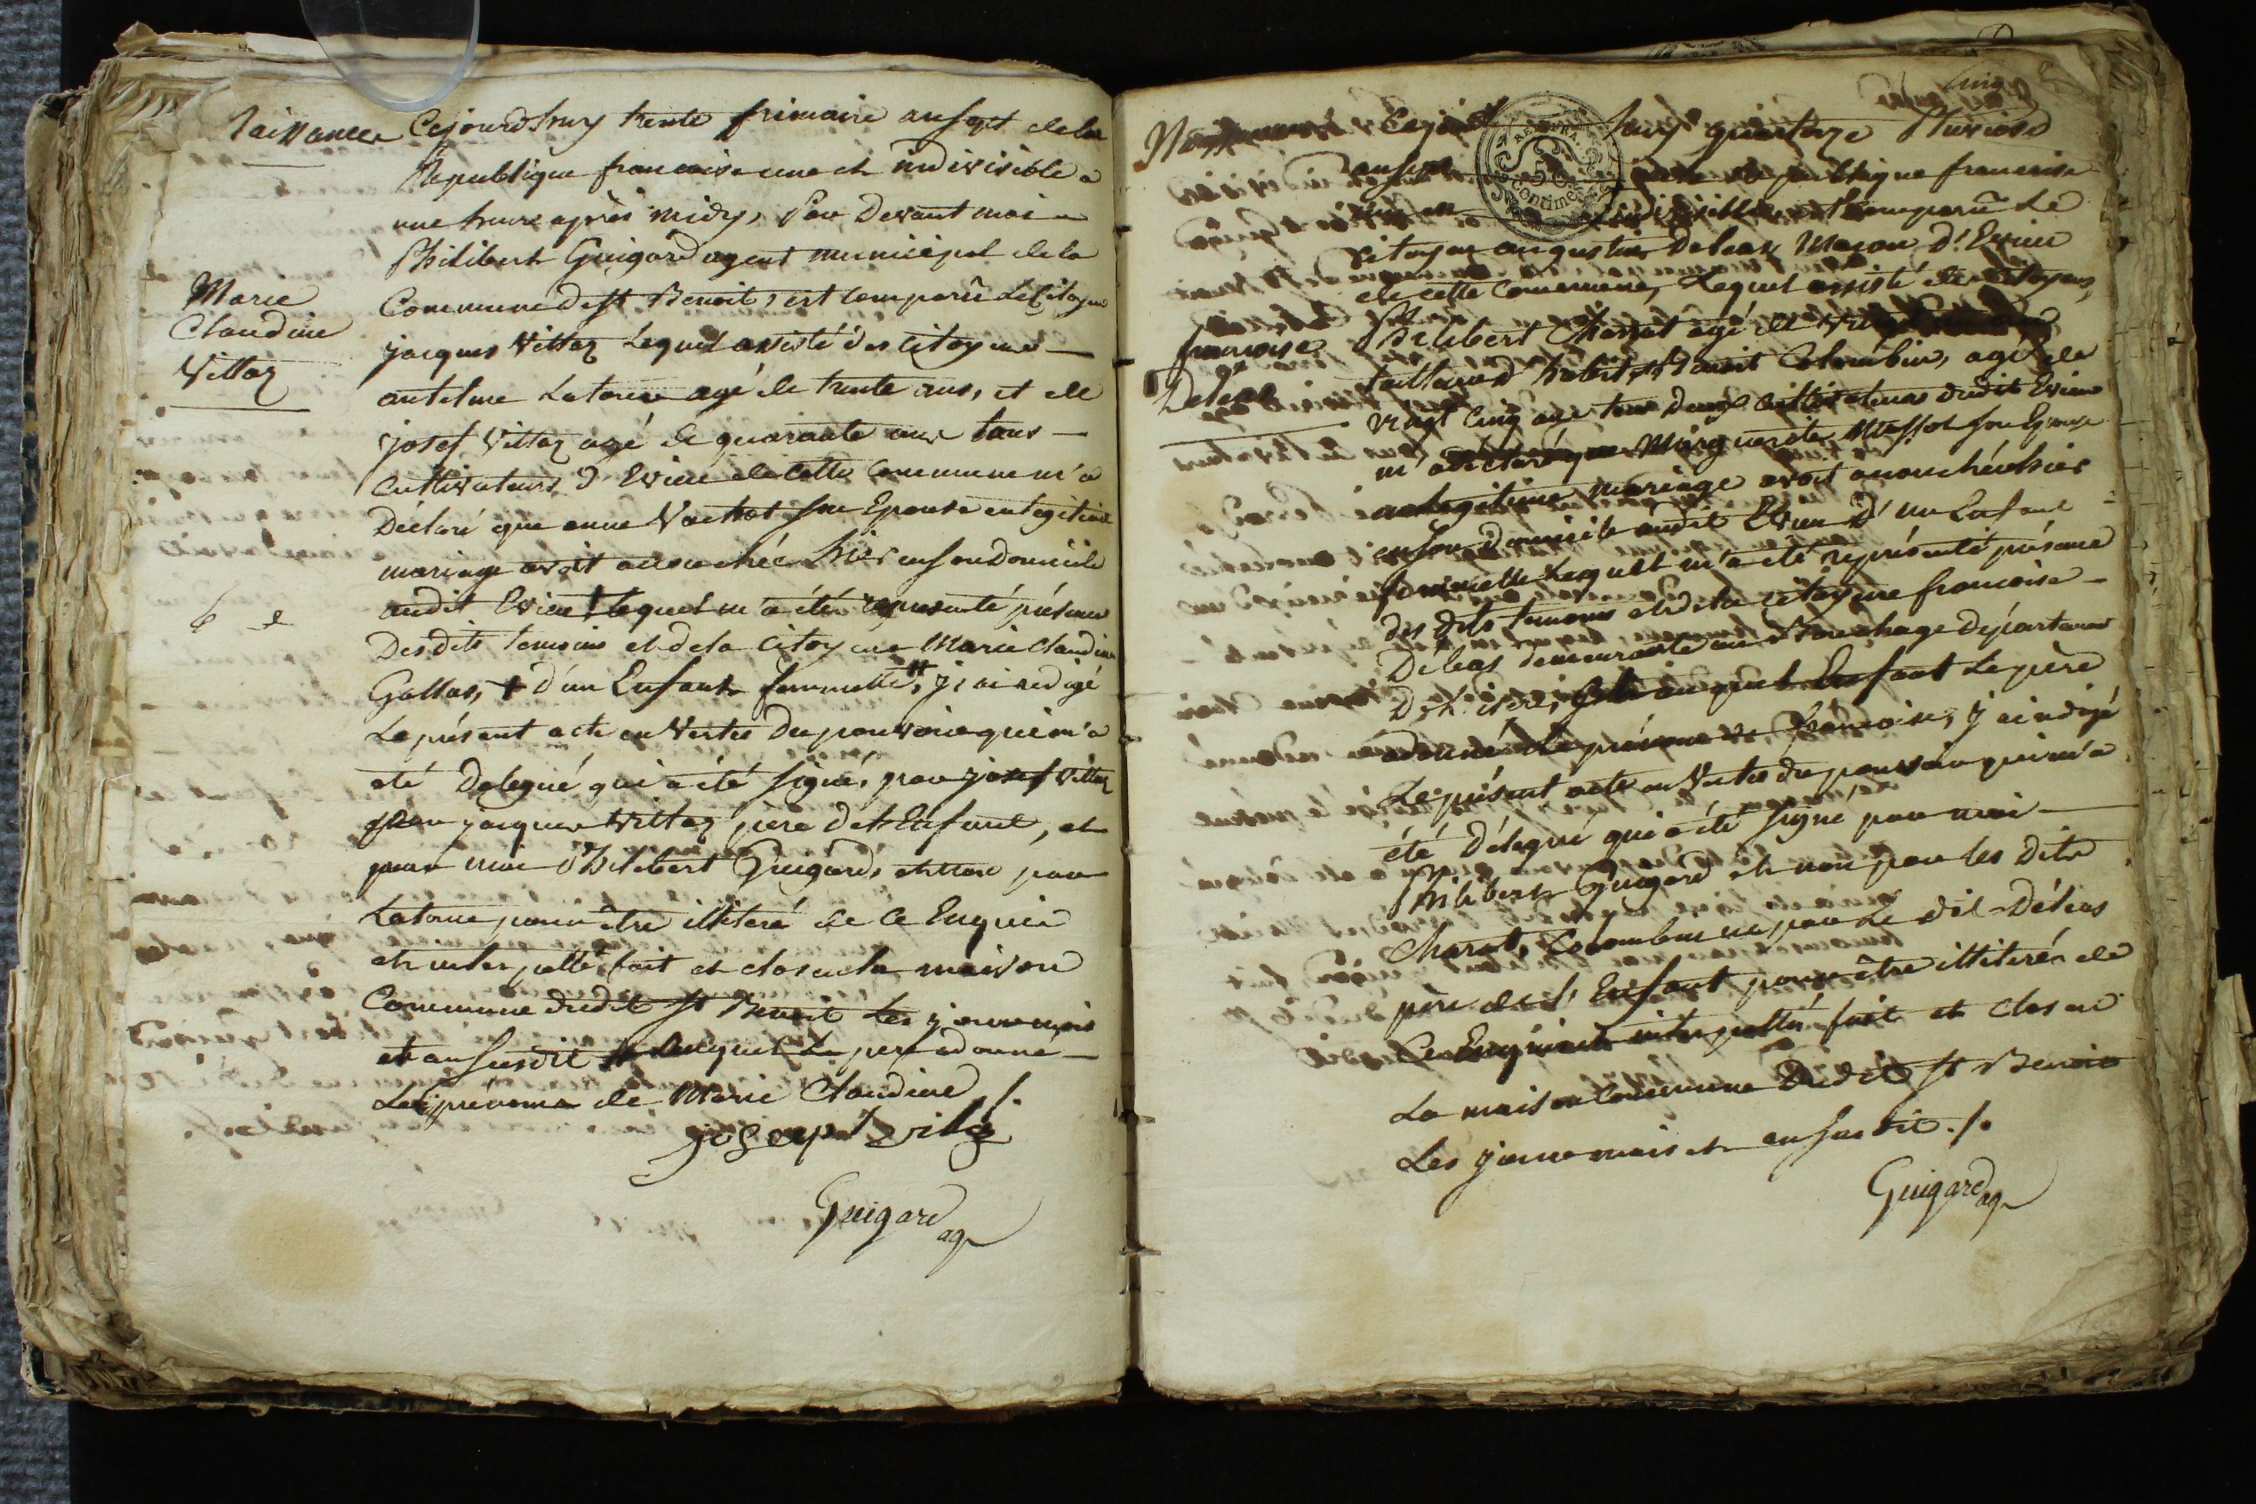 Naissance
Cejourdhuy trente frimaire an sept de la
Republique francaise une et indivisible a
une heure après midy, Par devant moi
Philibert Guigard agent municipal de la
Commune de St Benoit, est comparu le Citoyen
jacques Vittoz lequel assisté des citoyens
antelme Latour agé de trente ans, et de
josef Vittoz agé de quarante ans tous
cultivateurs d'Evieu de cette commune m'a
Déclaré que anne Vachot son Epouse en legitime
mariage avoit accouchée hier en son domicile
audit Evieu † lequel m'a été representé présence
Desdits temoins et de la citoyene Marie Claudine
Gallas, † d'un Enfant femmelle, j'ai redigé
Le présent acte en Vertu du pouvoir qui m'a
été Delegué qui a été signé, par josef Vittoz
par jacques Vittoz pere de l'Enfant, et
par moi Philibert Guigard, et non par
Latour pour être illiteré de ce Enquis
et interpellé fait et clos en la maison
Commune dudit St Benoit les jour mois
et an susdit auquel le pere a donné
Les prénoms de Marie Claudine ./.
josept vitoz
Guigard ag
Marie
Claudine
Vittoz
Cinq
50
Centimes
quatorze Pluviose
an sept republique francaise
indivisible, est comparu le
Citoyen augustin Deleas Macon d'Evieu
de cette commune, Lequel assisté de citoyens
Philibert Charat agé de
tailleur d'habit, et Benoit Colombin, agé de
vingt cinq ans tous deux cultivateurs dudit Evieu
m'a déclaré que Marguerite Massot son Epouse
en legitime mariage avoit accouchée hier
en son domicile audit Evieu d'un Enfant
femmelle Lequel m'a été représenté présence
des dits temoins et de la citoyene francoise
Deleas demeurante au Bouchage département
De l'isere, auquel Enfant Le père
a donné le prénom de francoise, j'ai redigé
Le présent acte en Vertu du pouvoir qui m'a
été Délégué qui a été signé par moi
Philibert Guigard et non par les Dits
Charat, Colombin ni par Le dit Deleas
père de l'Enfant pour être illiterés de
Ce Enquis et interpellés fait et clos en
La maison Commune Dudit St Benoit
Les jour mois et an susdit ./.
Guigard ag
francoise
Deleas